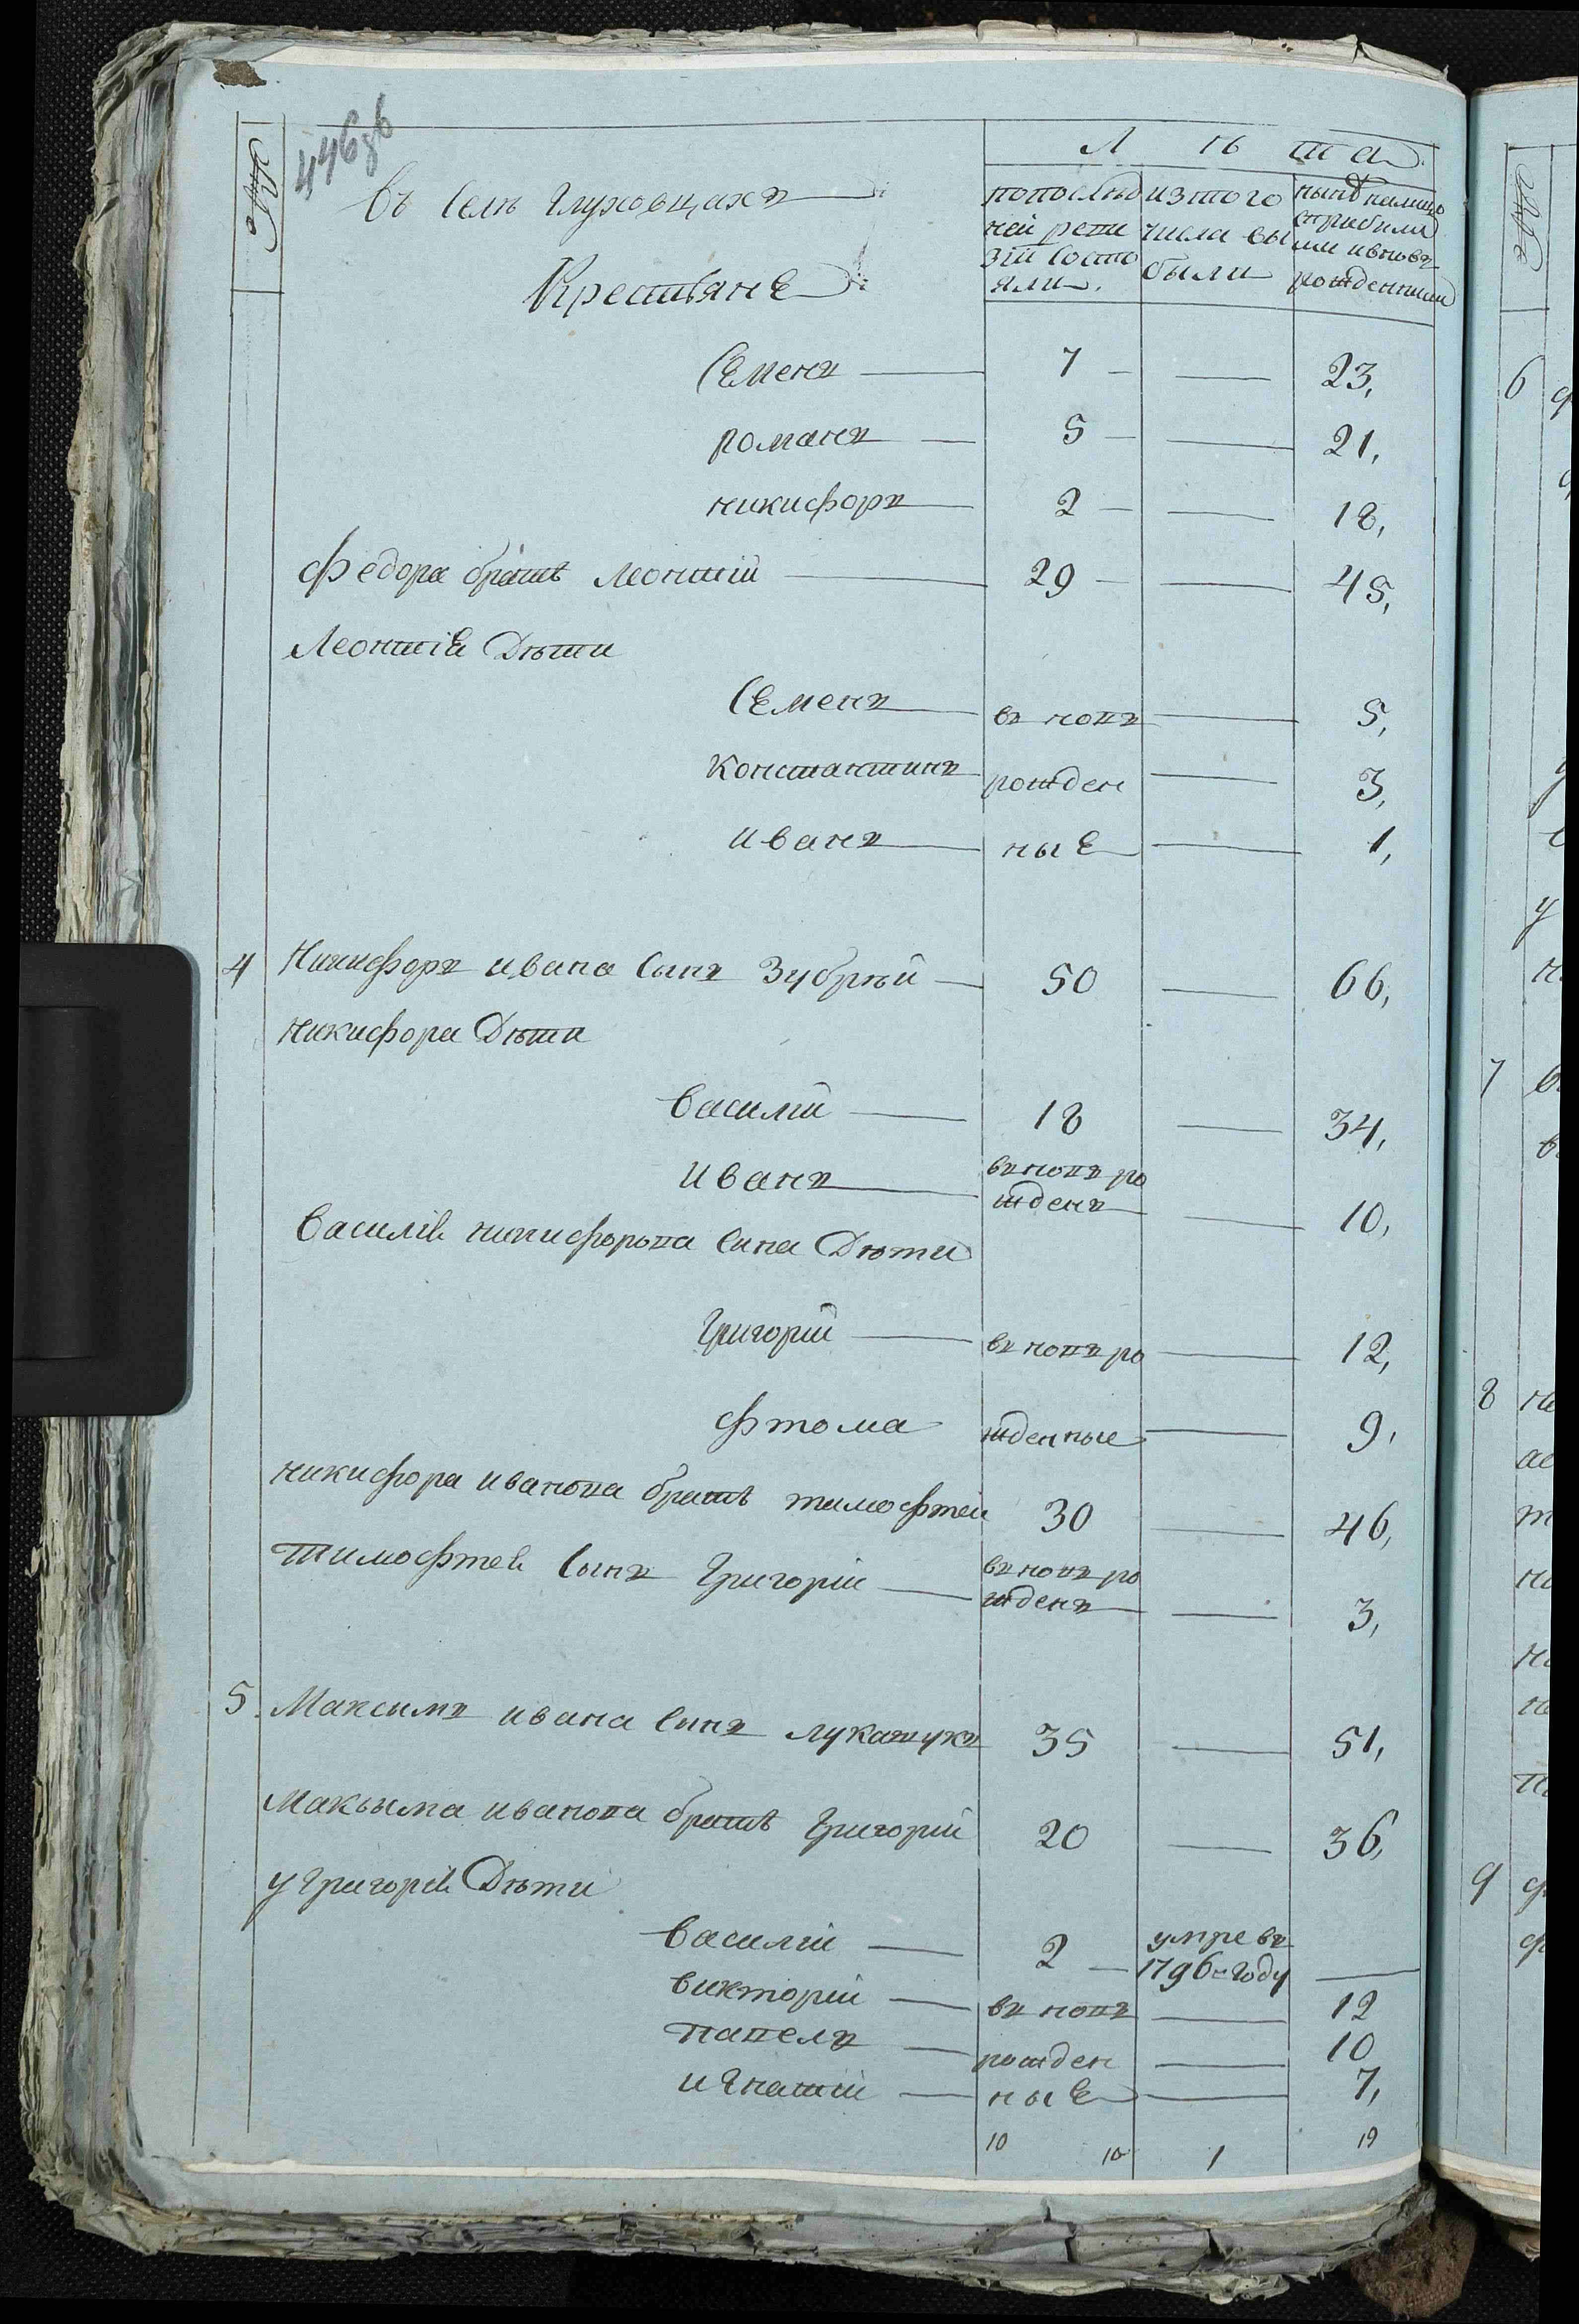 446 об
Лѣта
№
въ селѣ Глуховцахъ
Крестьяне
попослѣдней ревизіи состояли
изтого числа выбыли
нынѣ налицо сприбылыми ивновь рожденными
Семенъ — 7 — — 23,
романъ — 5 — — 21,
никифоръ — 2 — — 18,
Федора братъ Леонтій — 29 — — 45,
Леонтія Дѣти
Семенъ — въ новъ — 5,
константинъ — рожден — 3,
иванъ — ные — 1,
4 Никифоръ ивана сынъ Зубрѣй — 50 — 66,
никифора Дѣти
василій — 18 — 34,
иванъ — въновъ ро
жденъ — 10,
василія никифорова сына Дѣти
Григорій — въ новъ ро — 12,
фтома жденные — 9,
никифора иванова братъ тимофтей 30 — 46,
тимофтея сынъ Григорій — въ новъ ро
жденъ — 3,
5. Максимъ ивана сынъ лукашукъ 35 — 51,
Максыма иванова братъ Григорій 20 — 36,
у Григорія Дѣти
василій — 2 — умре въ
1796 году —
викторій — въ новъ — 12
павелъ — рожден — 10
игнатій — ные — 7,
10 10 1 19
№
6
7
8
9